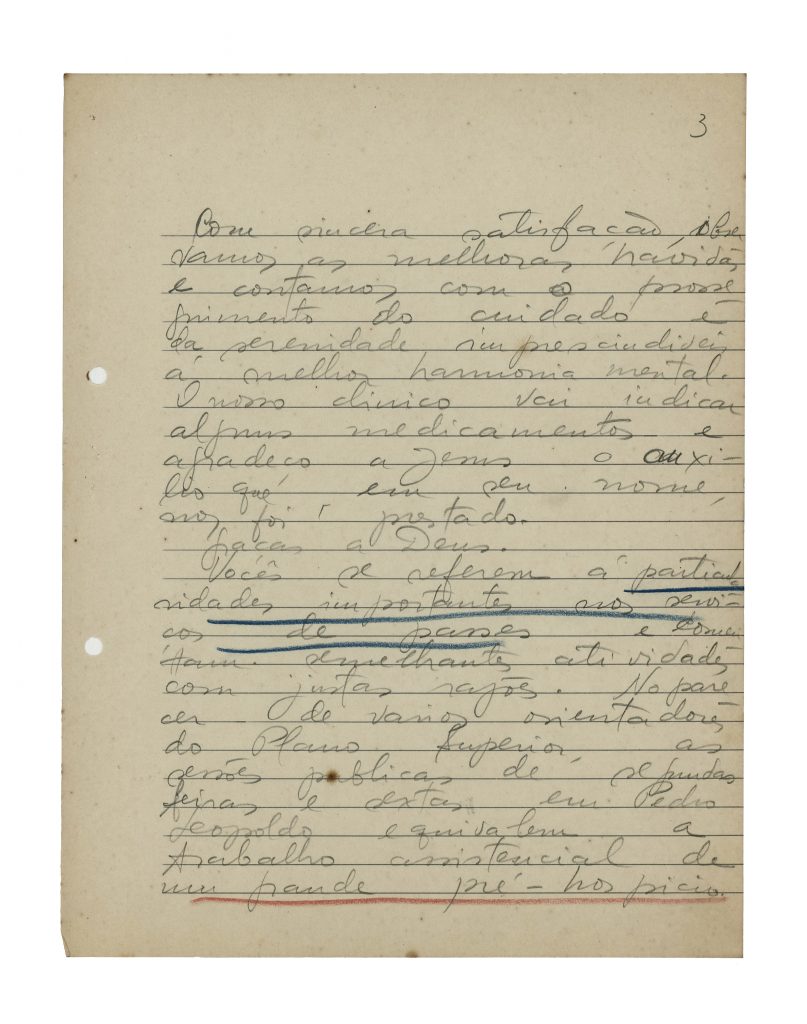 3
Com sincera satisfação, obser
vamos as melhoras havidas
e contamos com o prosse
guimento do cuidado e
da serenidade imprescindiveis
á melhor harmonia mental.
O nosso clinico vai indicar
alguns medicamentos e
agradeço a Jesus o auxi-
lio que em seu nome,
nos foi prestado.
Graças a Deus.
Vocês se referem á particula
ridades importantes nos servi-
ços de passes e comen
tam semelhantes atividades
com justas razões. No pare
cer de varios orientadores
do Plano Superior, as
sessões publicas de segundas
feiras e sextas em Pedro
Leopoldo equivalem a
trabalho assistencial de
um grande pré-hospicio.